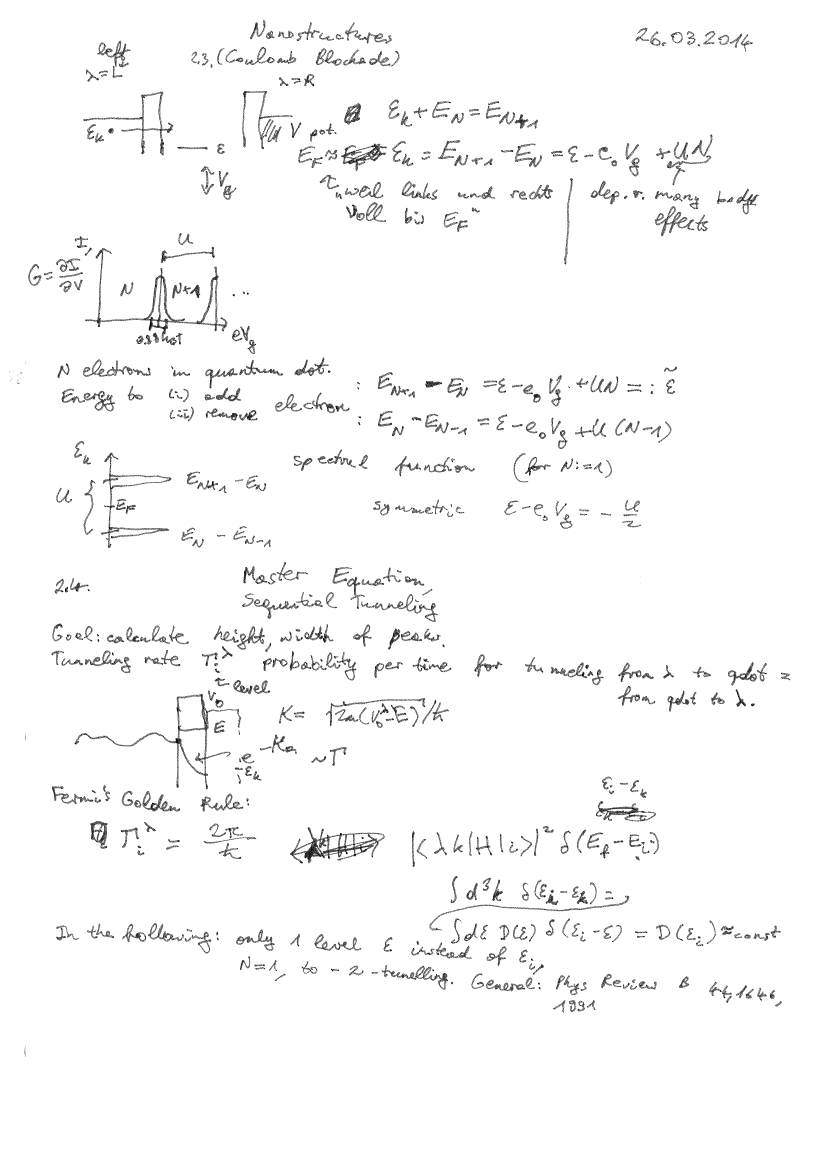 Nanostructures
26.03.2014
2.3. (Coulomb Blockade)
left
λ=L
λ=R
ε_k
ε
V_g
V pot.
ε_k + E_N = E_{N+1}
E_F ≈ ε_k = E_{N+1} - E_N = ε - e_0 V_g + UN
"weil links und rechts
voll bis E_F"
dep. v. many body
effects
I,
G = ∂I/∂V
U
N
N+1
...
eV_g
N electrons in quantum dot.
Energy to (i) add
(ii) remove electron
: E_{N+1} - E_N = ε - e_0 V_g + UN =: ε̃
: E_N - E_{N-1} = ε - e_0 V_g + U(N-1)
ε_k
U
E_{N+1} - E_N
E_F
E_N - E_{N-1}
spectral function (for N:=1)
symmetric ε - e_0 V_g = - U/2
2.4. Master Equation,
Sequential Tunneling
Goal: calculate height, width of peaks.
Tunneling rate Γ_i^λ probability per time for tunneling from λ to qdot =
from qdot to λ.
level
V_0
E
K = √(2m(V_0^λ - E))/ħ
e^{-Ka} ~ Γ
ε_k
Fermi's Golden Rule:
ε_i - ε_k
Γ_i^λ = 2π/ħ |<λk|H|i>|² δ(E_f - E_i)
∫d³k δ(ε_i - ε_k) =
∫dε D(ε) δ(ε_i - ε) = D(ε_i) ≈ const
In the following: only 1 level ε instead of ε_i,
N=1, to - 2 - tunnelling. General: Phys Review B 44, 1646,
1991